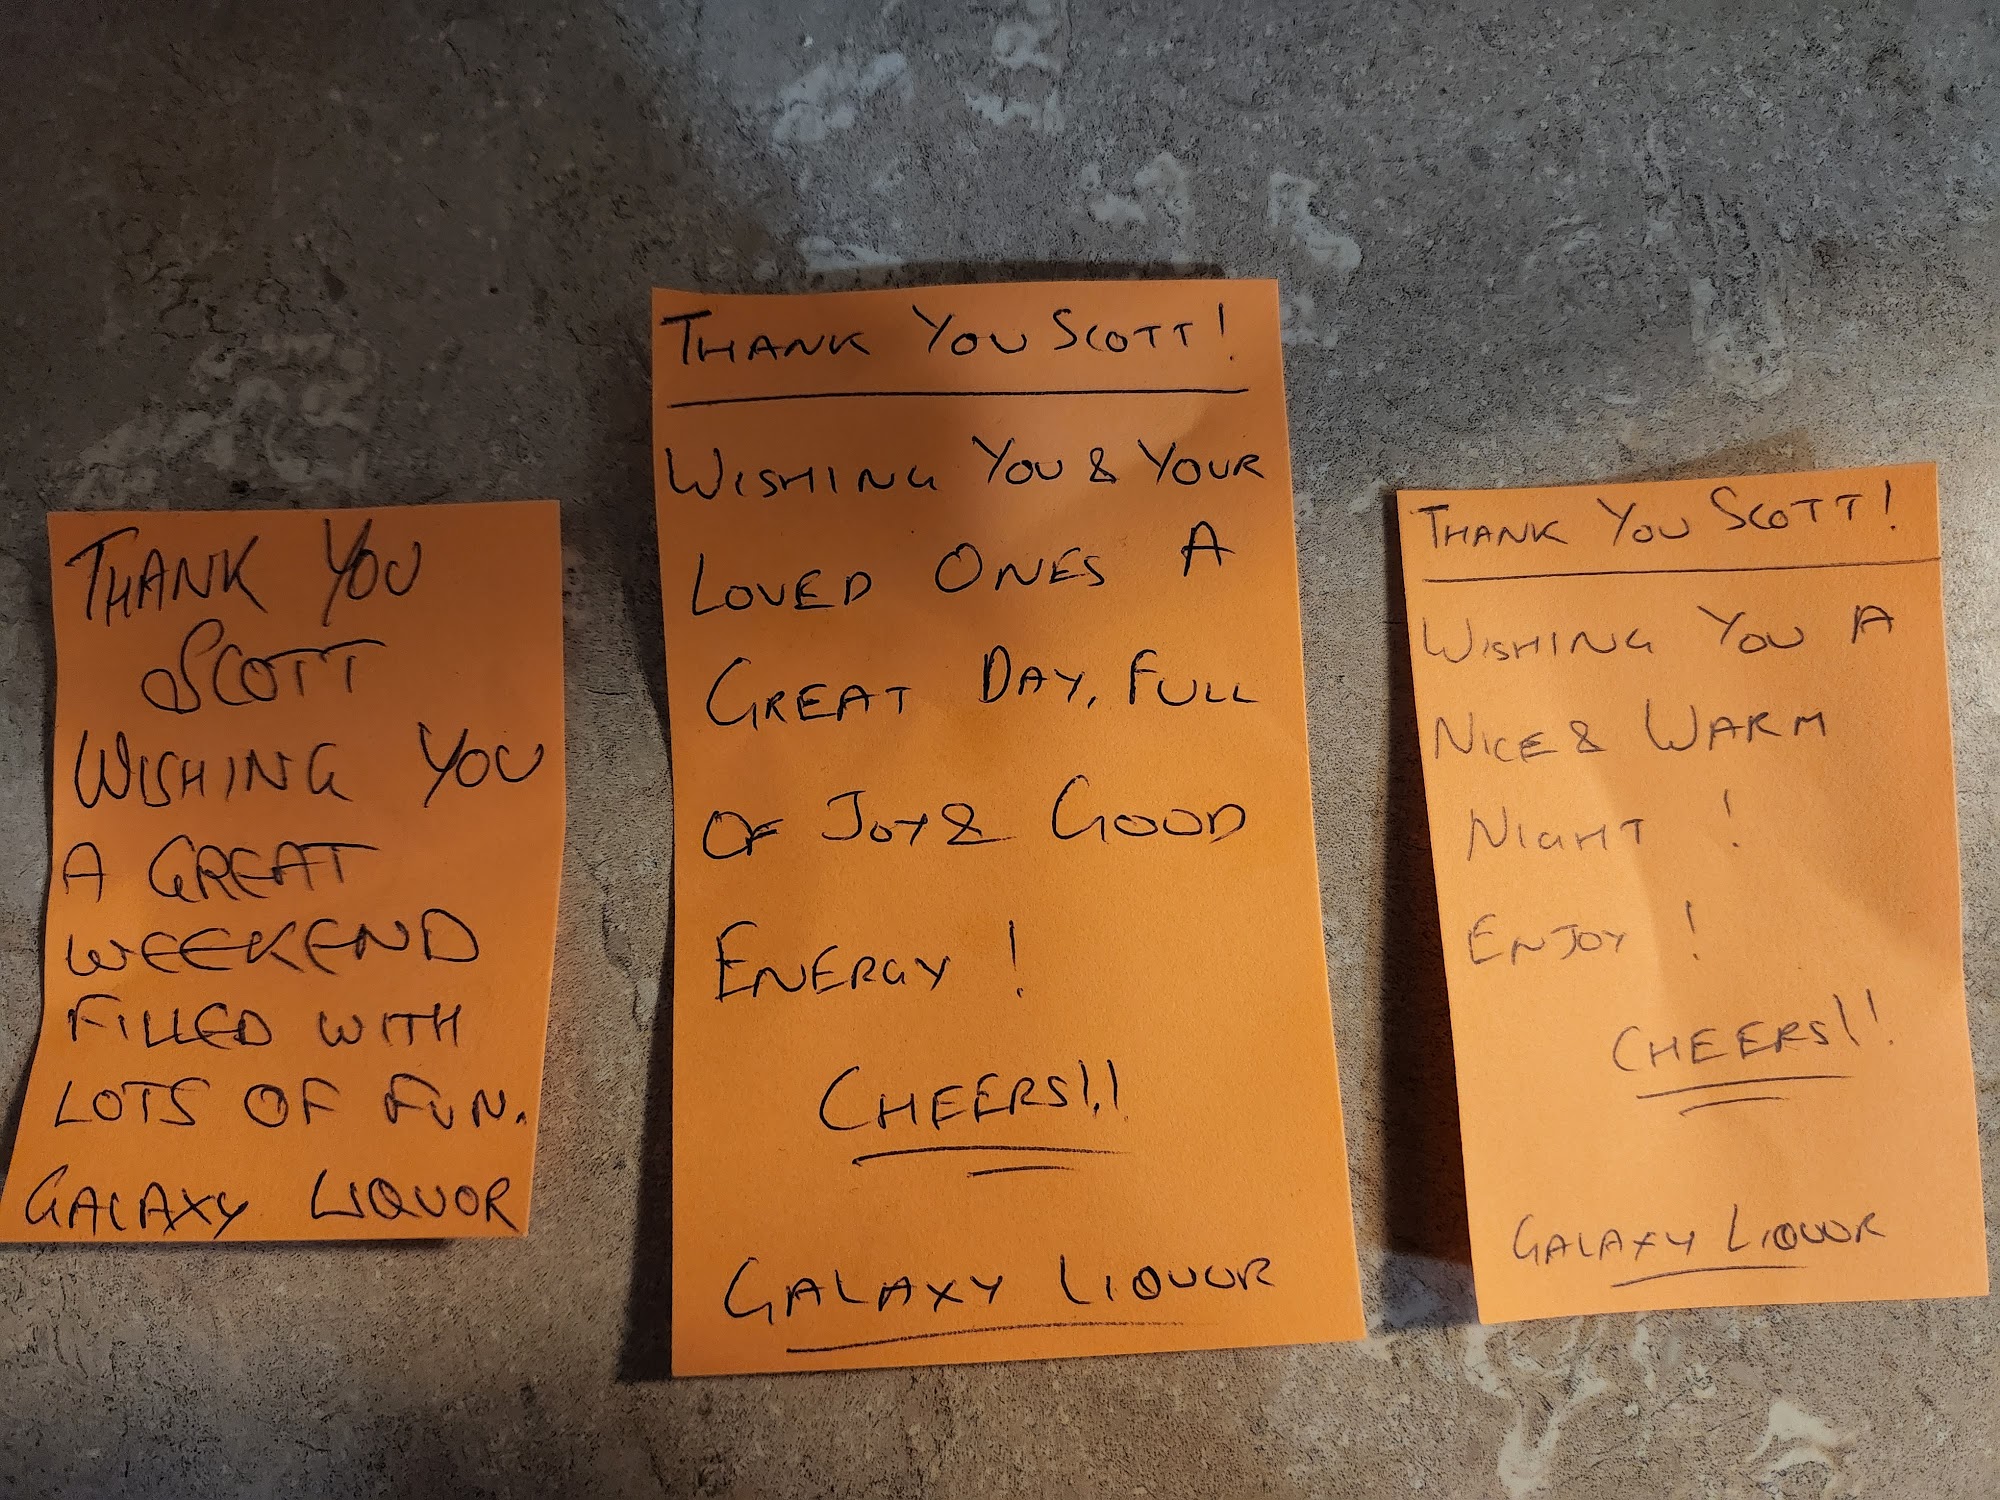 THANK YOU
SCOTT
WISHING YOU
A GREAT
WEEKEND
FILLED WITH
LOTS OF FUN.
GALAXY LIQUOR
THANK YOU SCOTT!
WISHING YOU & YOUR
LOVED ONES A
GREAT DAY, FULL
OF JOY & GOOD
ENERGY!
CHEERS!!
GALAXY LIQUOR
THANK YOU SCOTT!
WISHING YOU A
NICE & WARM
NIGHT !
ENJOY !
CHEERS!!
GALAXY LIQUOR